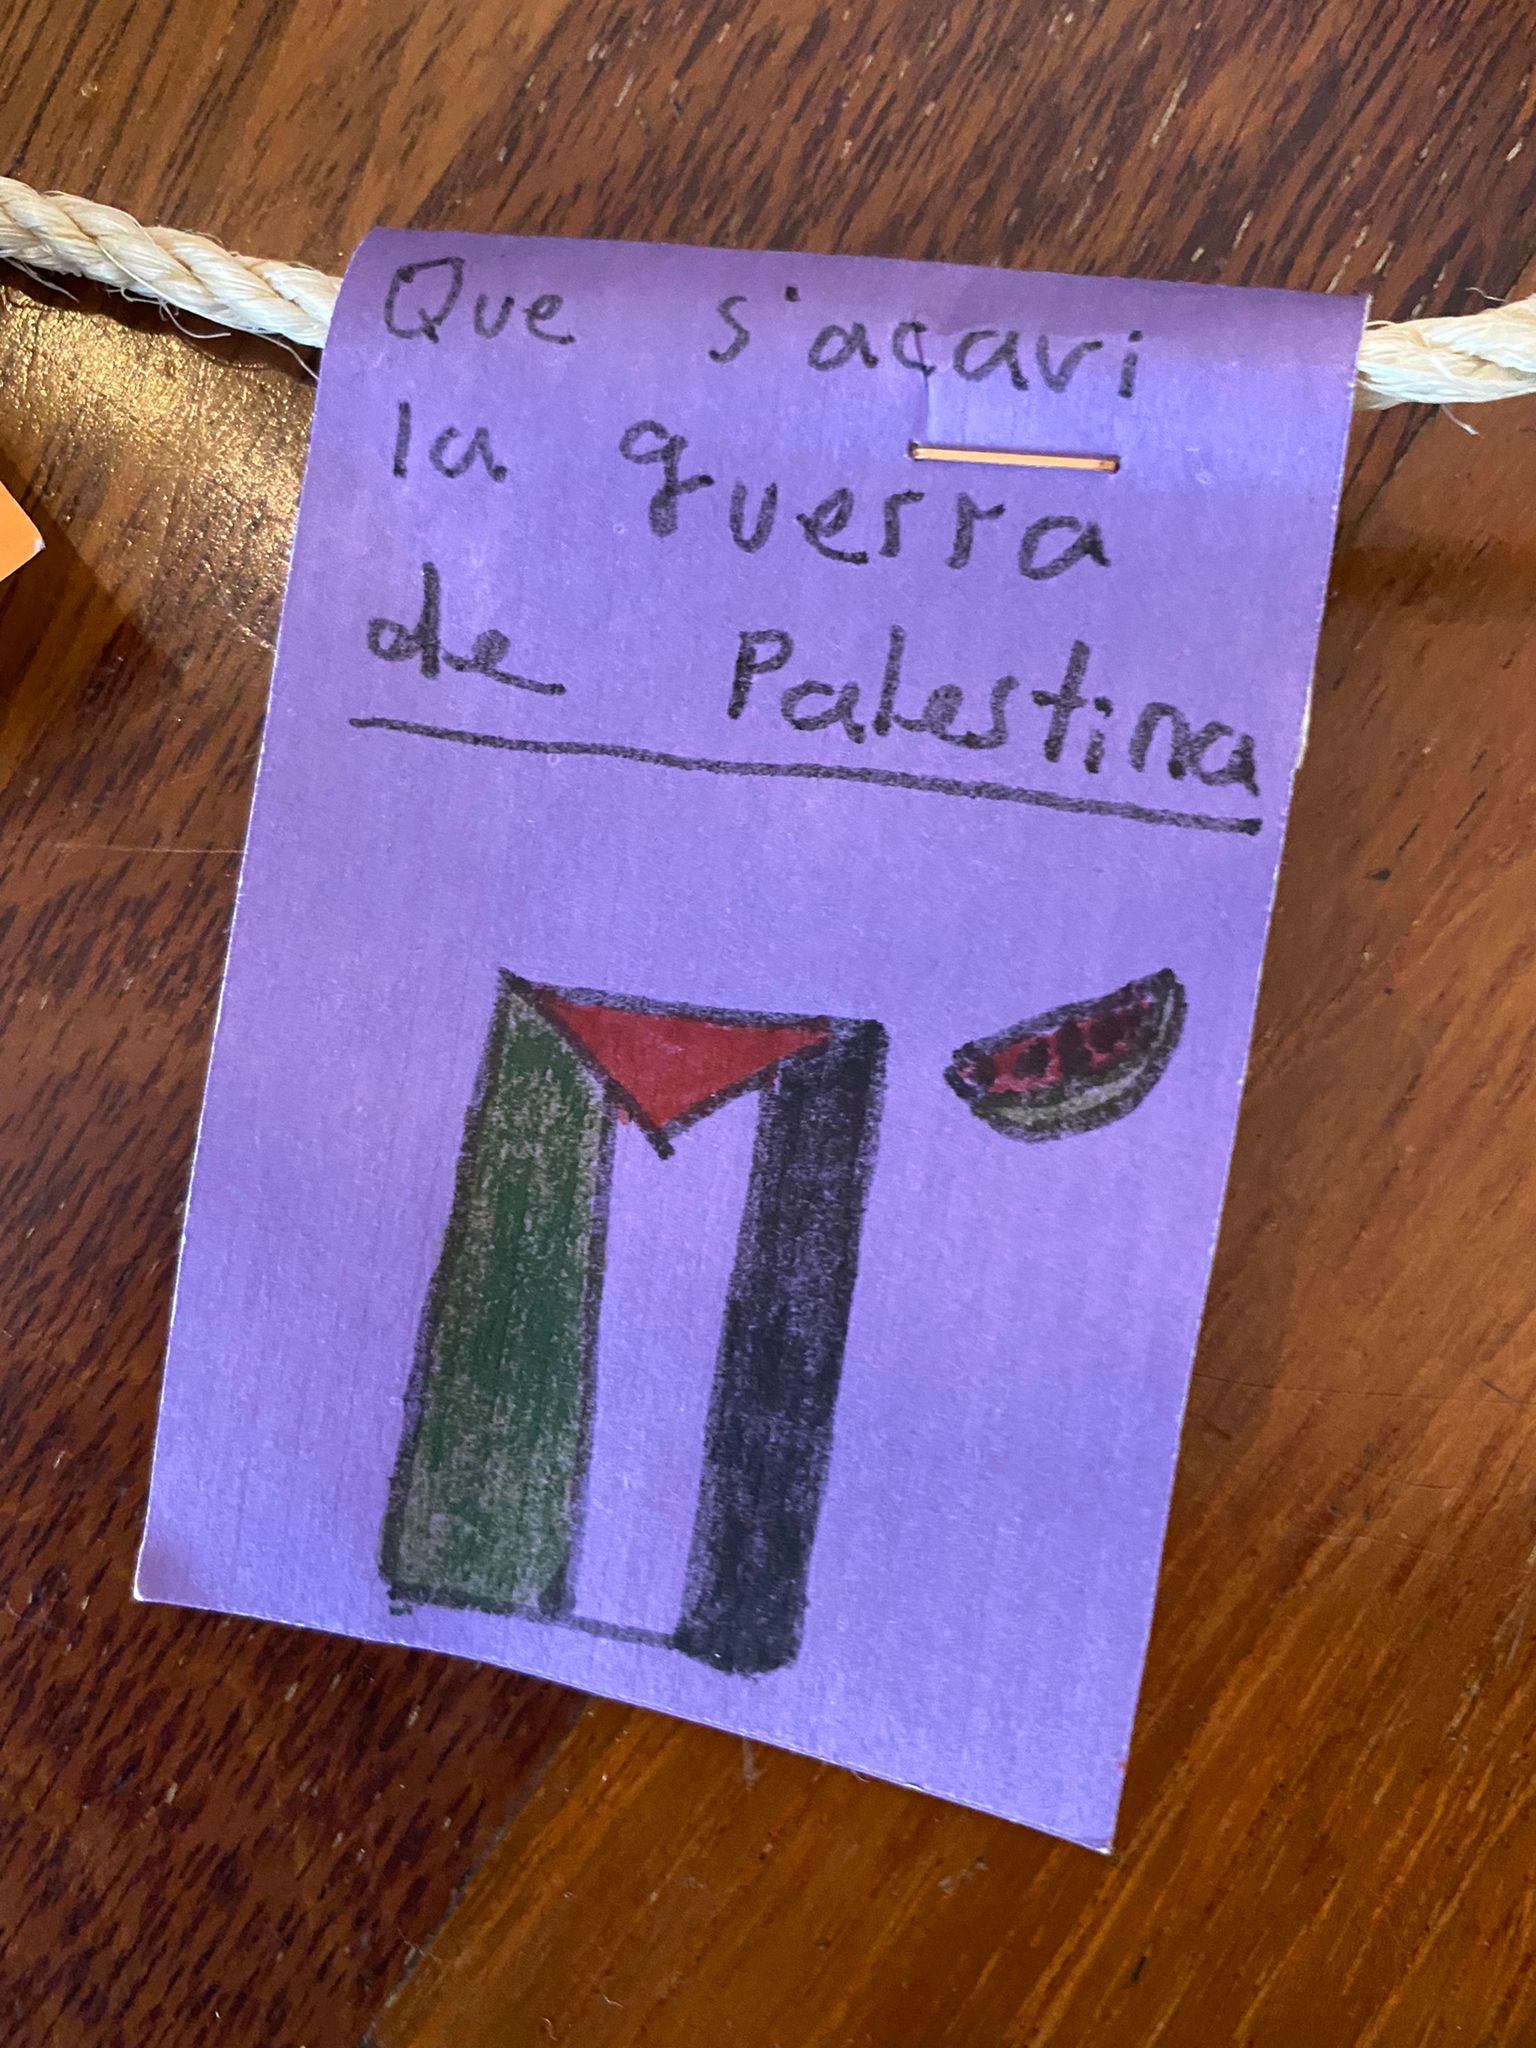 Que s'acavi
la guerra
de Palestina